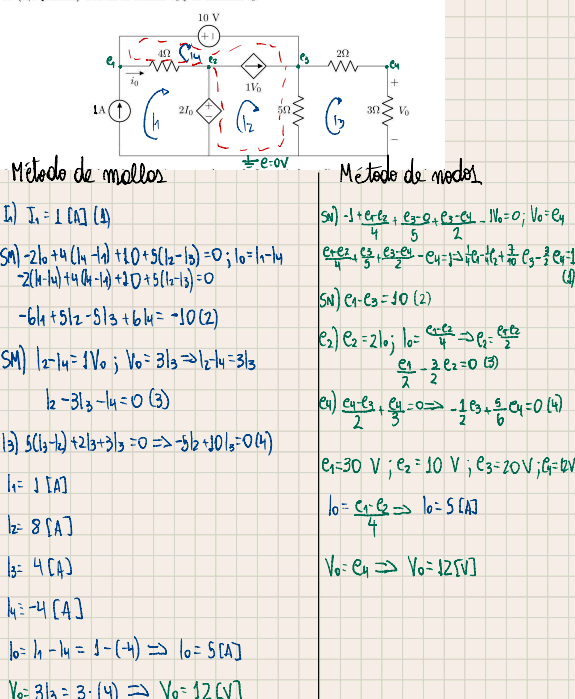 10 V
e1
4Ω
I4
e2
e3
2Ω
e4
i0
1V0
1A
I1
2I0
I2
5Ω
I3
3Ω
V0
e=0V
Método de mallas
I1) I1 = 1 [A] (1)
SM) -2I0+4(I4-I1)+10+5(I2-I3)=0; I0=I1-I4
-2(I1-I4)+4(I4-I1)+10+5(I2-I3)=0
-6I1+5I2-5I3+6I4=-10(2)
SM) I2-I4=1V0; V0=3I3⇒I2-I4=3I3
I2-3I3-I4=0 (3)
I3) 5(I3-I2)+2I3+3I3=0 ⇒ -5I2+10I3=0(4)
I1= 1 [A]
I2= 8 [A]
I3= 4 [A]
I4=-4 [A]
I0= I1-I4 = 1-(-4) ⇒ I0=5[A]
V0=3I3=3·(4) ⇒ V0=12[V]
Método de nodos
SN) -1+(e1-e2)/4+(e3-0)/5+(e3-e4)/2-1V0=0; V0=e4
(e1-e2)/4+e3/5+(e3-e4)/2-e4=1⇒1/4e1-1/4e2+7/10 e3-3/2 e4=1
(1)
SN) e1-e3=10 (2)
e2) e2=2I0; I0=(e1-e2)/4 ⇒ e2=(e1-e2)/2
e1/2-3/2 e2=0 (3)
e4) (e4-e3)/2+e4/3=0 ⇒ -1/2e3+5/6 e4=0 (4)
e1=30 V; e2=10 V; e3=20V; e4=12V
I0=(e1-e2)/4 ⇒ I0=5[A]
V0=e4 ⇒ V0=12[V]